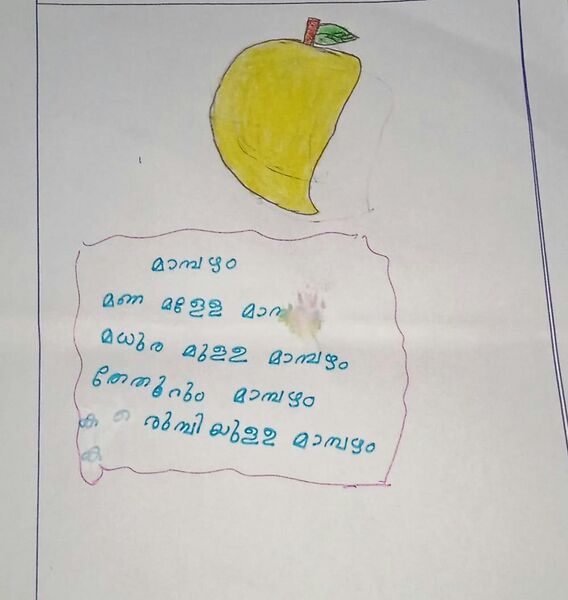 മാമ്പഴം
മണ മുള്ള
മധുര മുള്ള മാമ്പഴം
തേനൂറും മാമ്പഴം
രുമ്പിയുള്ള മാമ്പഴം